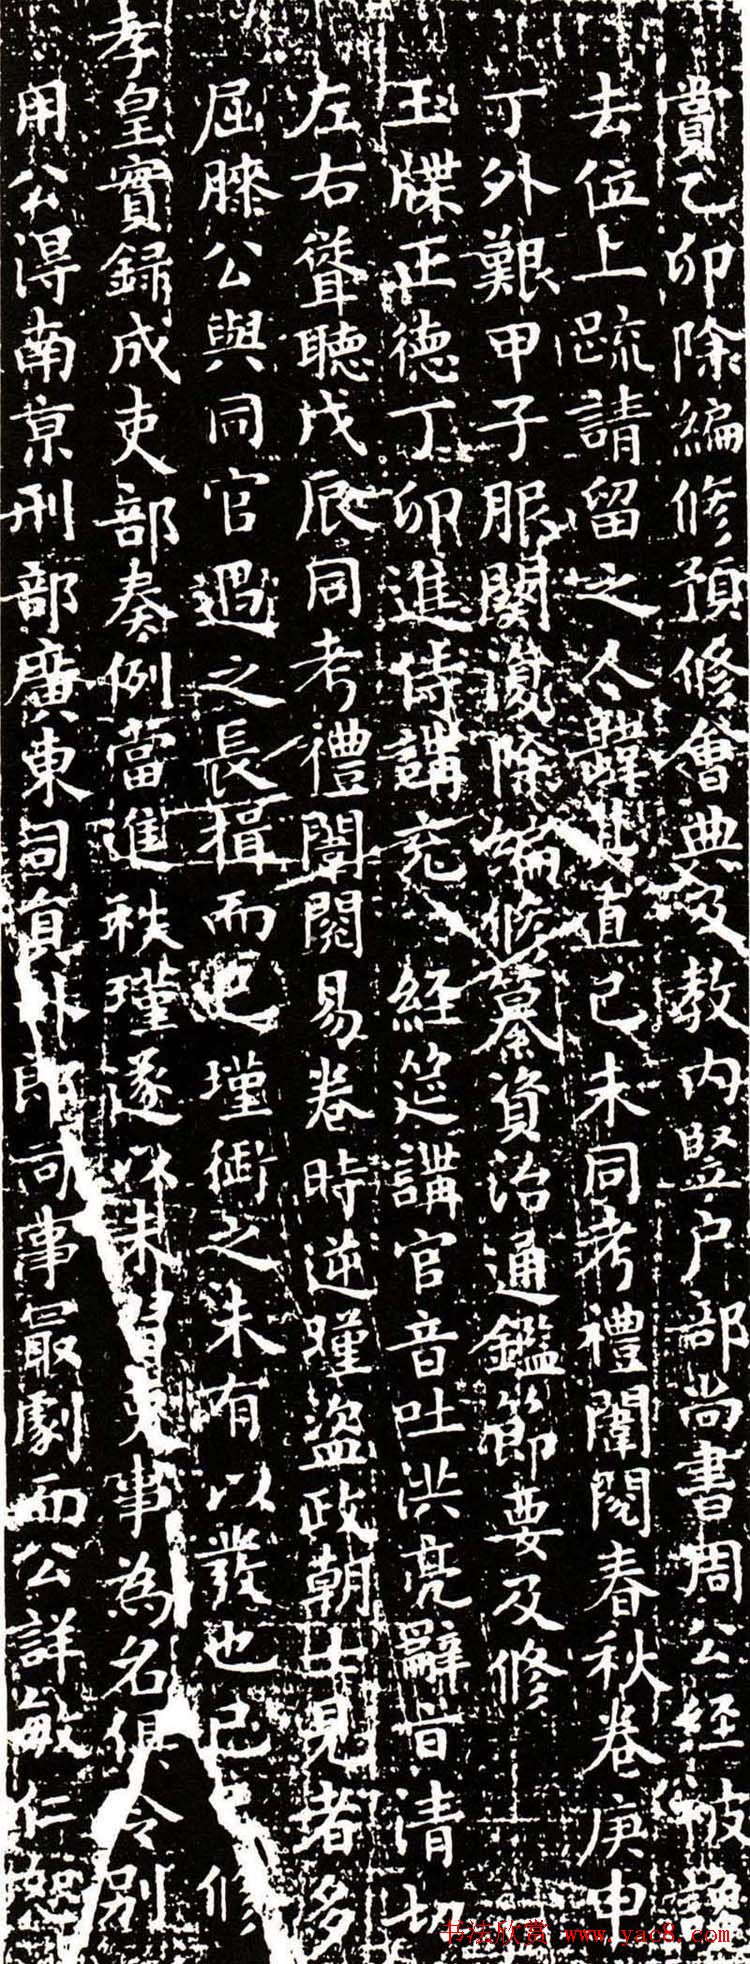 賞乙卯除編修預修會典及教内竪户部尚書周公經被讒
去位上疏請留之人韙其直己未同考禮闈閲春秋卷庚申
丁外艱甲子服闋復除編修纂資治通鑑節要及修
玉牒正德丁卯進侍講充 經筵講官音吐洪亮辭旨清切
左右聳聽戊辰同考禮闈閲易卷時逆瑾盜政朝士見者多
屈膝公與同官遇之長揖而已瑾銜之未有以發也已 修
孝皇實録成吏部奏例當進秩瑾遂以未習吏事為名俱令别
用公得南京刑部廣東司員外郎司事最劇而公詳敏仁恕
书法欣赏 www.yac8.com